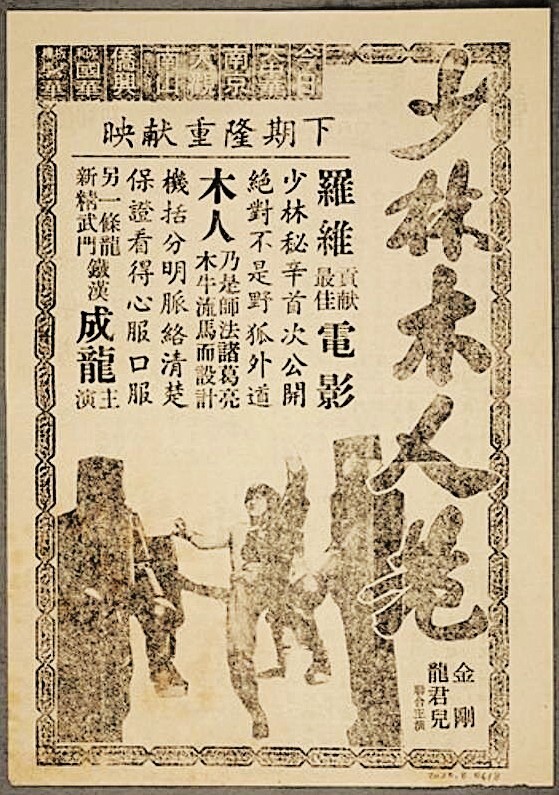 今日
南京
大觀
南山
僑興
永和國華
下期隆重献映
少林木人巷
羅維貢献最佳電影
少林秘辛首次公開
絕對不是野狐外道
木人乃是師法諸葛亮
木牛流馬而設計
機括分明脈絡清楚
保證看得心服口服
另一條龍
新精武門鐵漢成龍主演
金剛
龍君兒
聯合主演